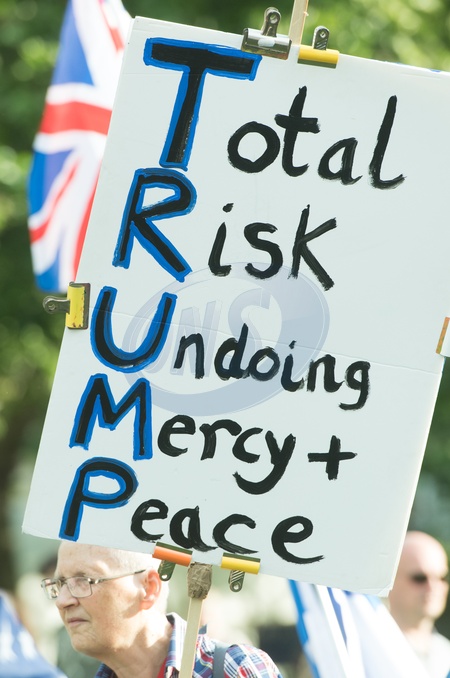 Total
Risk
Undoing
Mercy +
Peace
UNS